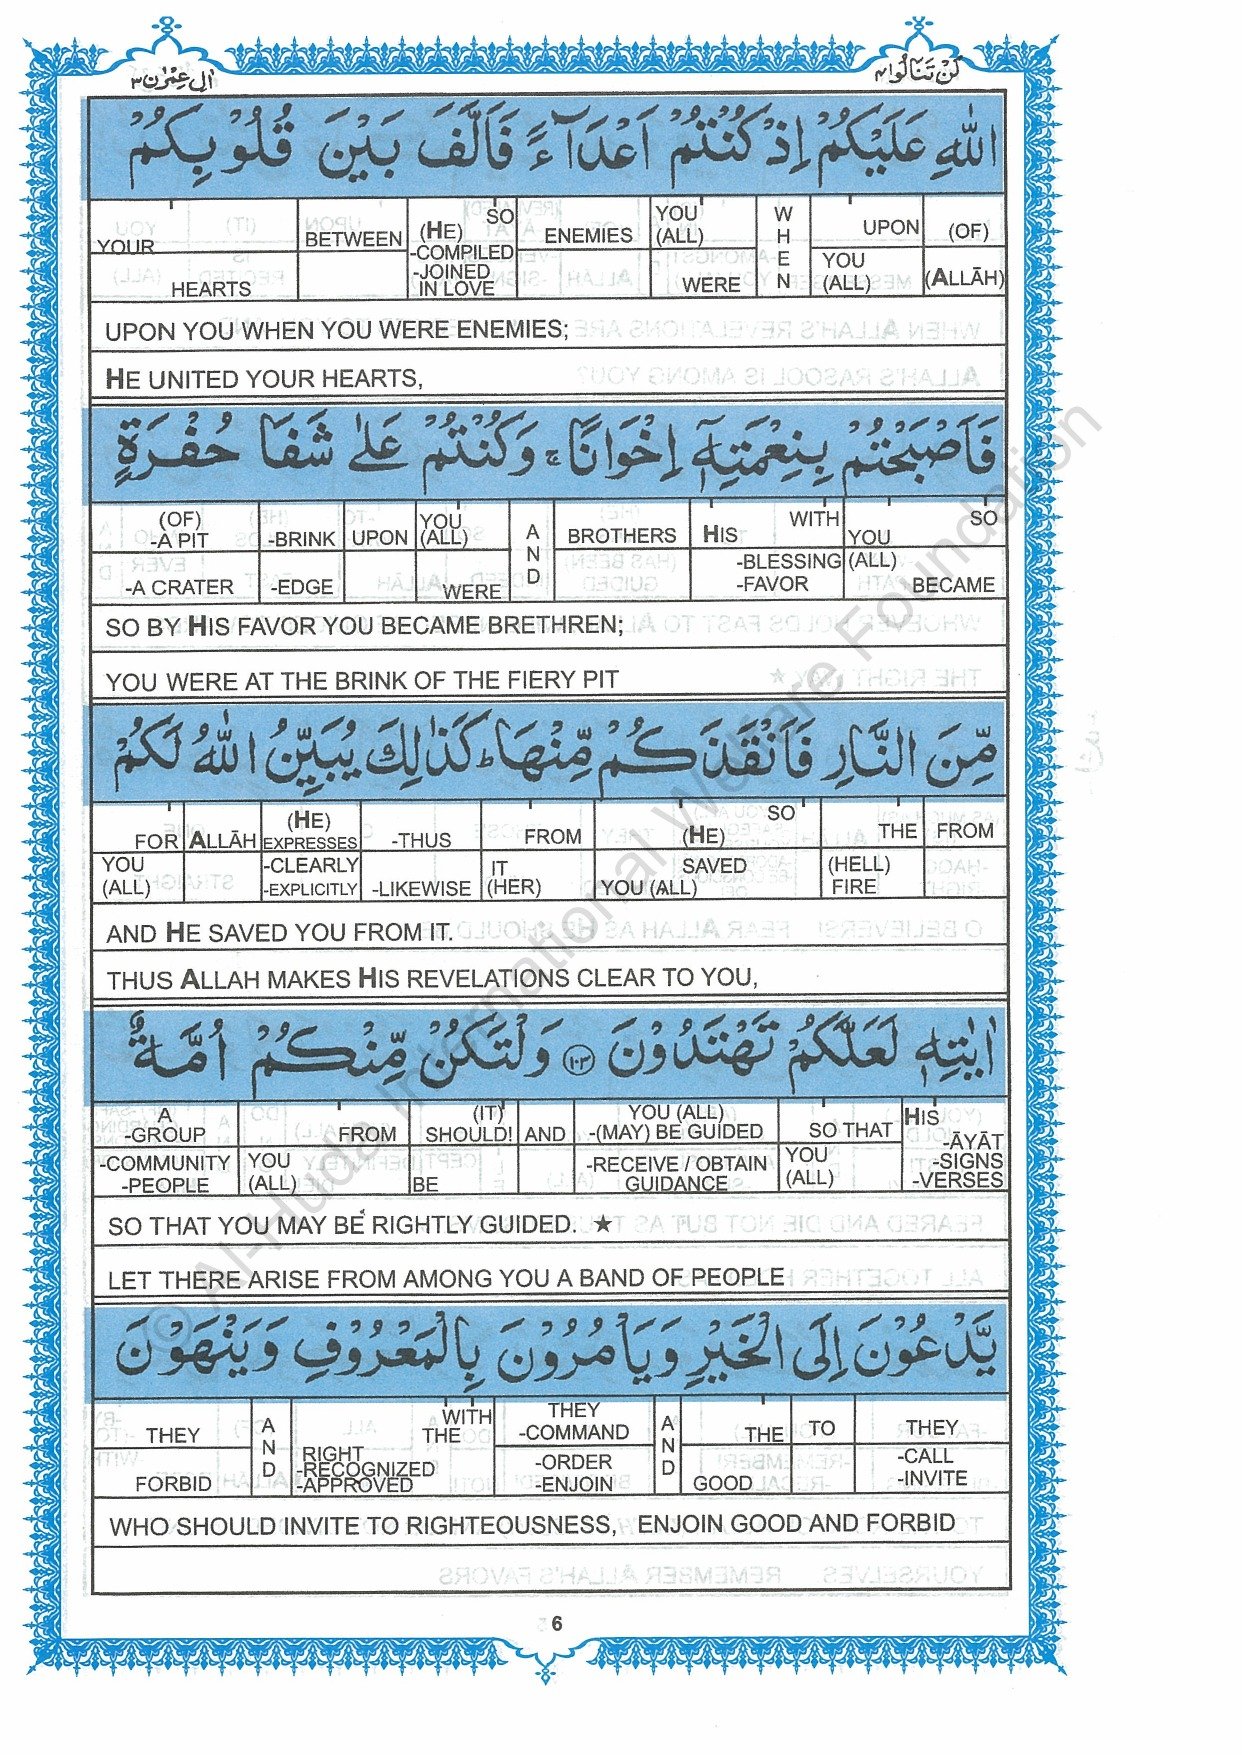 اٰل عِمْرٰن ٣
لَنْ تَنَالُوا ٤
اللّٰهِ عَلَيْكُمْ اِذْ كُنْتُمْ اَعْدَآءً فَاَلَّفَ بَيْنَ قُلُوْبِكُمْ
YOUR HEARTS | BETWEEN | SO (HE) -COMPILED -JOINED IN LOVE | ENEMIES | YOU (ALL) WERE | WHEN | UPON YOU (ALL) | (OF) (ALLĀH)
UPON YOU WHEN YOU WERE ENEMIES;
HE UNITED YOUR HEARTS,
فَاَصْبَحْتُمْ بِنِعْمَتِهٖٓ اِخْوَانًا ۚ وَكُنْتُمْ عَلٰى شَفَا حُفْرَةٍ
(OF) -A PIT -A CRATER | -BRINK -EDGE | UPON | YOU (ALL) WERE | AND | BROTHERS | WITH HIS -BLESSING -FAVOR | SO YOU (ALL) BECAME
SO BY HIS FAVOR YOU BECAME BRETHREN;
YOU WERE AT THE BRINK OF THE FIERY PIT
مِّنَ النَّارِ فَاَنْقَذَكُمْ مِّنْهَا ؕ كَذٰلِكَ يُبَيِّنُ اللّٰهُ لَكُمْ
FOR YOU (ALL) | ALLĀH | (HE) EXPRESSES -CLEARLY -EXPLICITLY | -THUS -LIKEWISE | FROM IT (HER) | SO (HE) SAVED YOU (ALL) | THE (HELL) FIRE | FROM
AND HE SAVED YOU FROM IT.
THUS ALLAH MAKES HIS REVELATIONS CLEAR TO YOU,
اٰيٰتِهٖ لَعَلَّكُمْ تَهْتَدُوْنَ ١٠٣ وَلْتَكُنْ مِّنْكُمْ اُمَّةٌ
A -GROUP -COMMUNITY -PEOPLE | FROM YOU (ALL) | (IT) SHOULD! BE | AND | YOU (ALL) -(MAY) BE GUIDED -RECEIVE / OBTAIN GUIDANCE | SO THAT YOU (ALL) | HIS -ĀYĀT -SIGNS -VERSES
SO THAT YOU MAY BE RIGHTLY GUIDED. ★
LET THERE ARISE FROM AMONG YOU A BAND OF PEOPLE
يَّدْعُوْنَ اِلَى الْخَيْرِ وَيَاْمُرُوْنَ بِالْمَعْرُوْفِ وَيَنْهَوْنَ
THEY FORBID | AND | WITH THE RIGHT -RECOGNIZED -APPROVED | THEY -COMMAND -ORDER -ENJOIN | AND | THE GOOD | TO | THEY -CALL -INVITE
WHO SHOULD INVITE TO RIGHTEOUSNESS, ENJOIN GOOD AND FORBID
6
© Al-Huda International Welfare Foundation